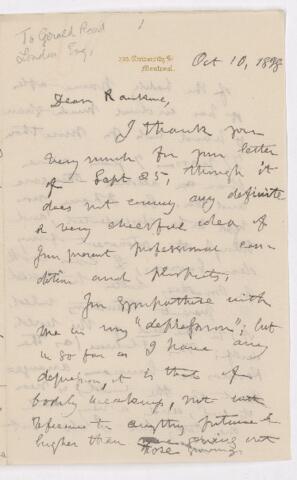 To Gerald
London Esq.
University St
Montreal.
Oct 10, 1898
Dear
I thank you
very much for your letter
of Sept 25, though it
does not convey any definite
& very cheerful idea of
your present professional con-
dition and prospects.
You sympathise with
me in my "depression"; but
in so far as I have any
depression, it is that of
bodily weakness, not with
reference to anything future &
higher than
those